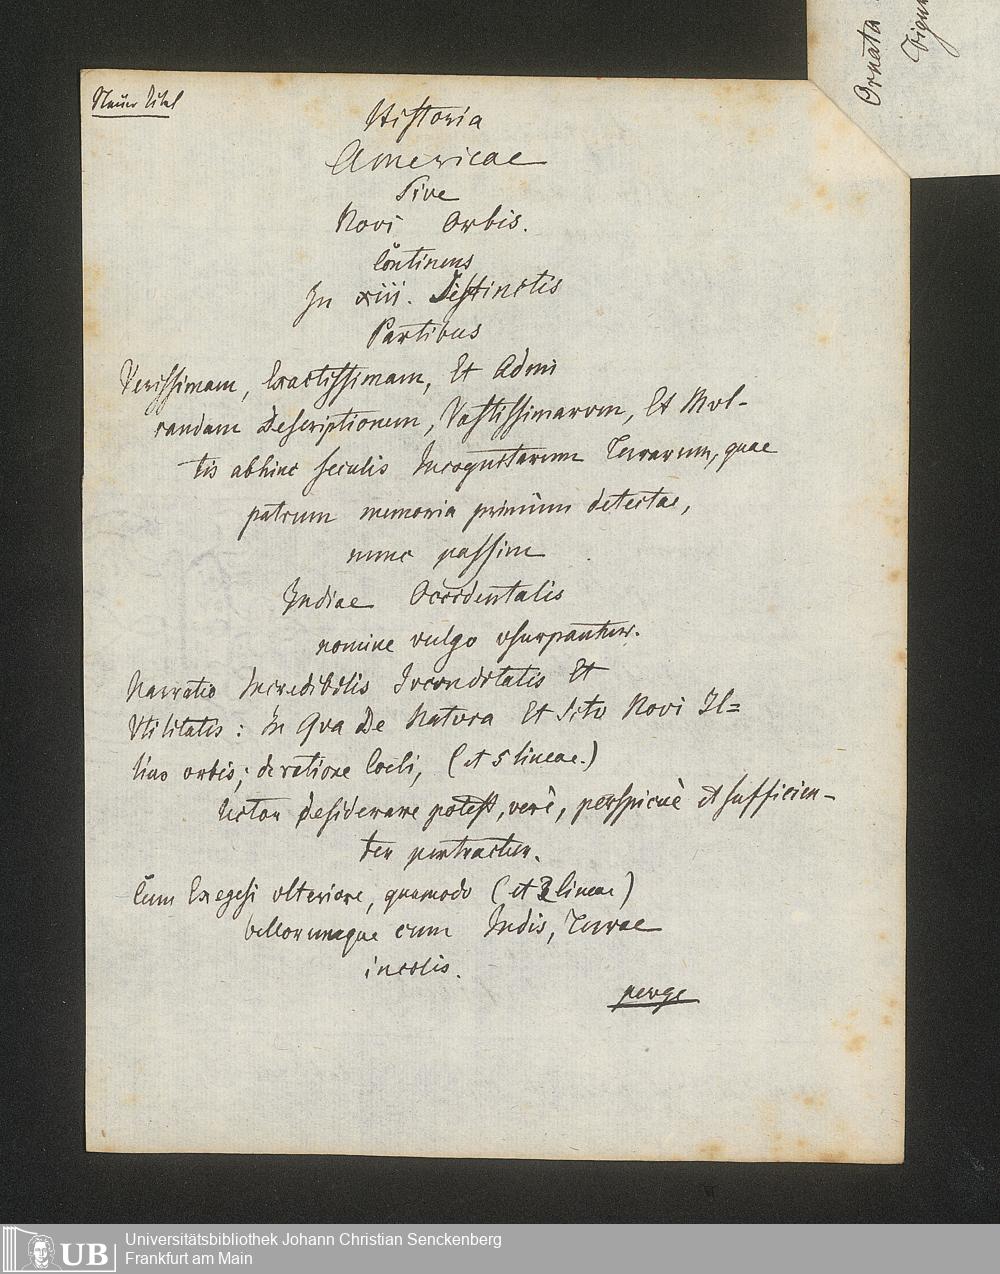 Neuer Titel
Historia
Americae
Sive
Novi Orbis.
Cõntinens
In xiii. Distinctis
Partibus
Verissimam, Exactissimam, Et Admi
randam Descriptionem, Vastissimarvm, Et Mvl-
tis abhinc seculis Incognitarvm Terrarvm, quae
patrum memoria primùm detectae,
nunc passim
Indiae Occidentalis
nomine vulgo vsurpantur.
Narratio Incredibilis Ivcvnditatis Et
Vtilitatis: In Qva De Natvra Et Sitv Novi Il=
lius orbis; de ratione Coeli, (et 5 lineae.)
Lector desiderare potest, verè, perspicuè et sufficien-
ter pertractur.
Cũm Exegesi vlteriore, quomodo (et 3 lineae)
bellorumque cum Indis, Terrae
incolis.
perge
Ornata
UB
Universitätsbibliothek Johann Christian Senckenberg
Frankfurt am Main